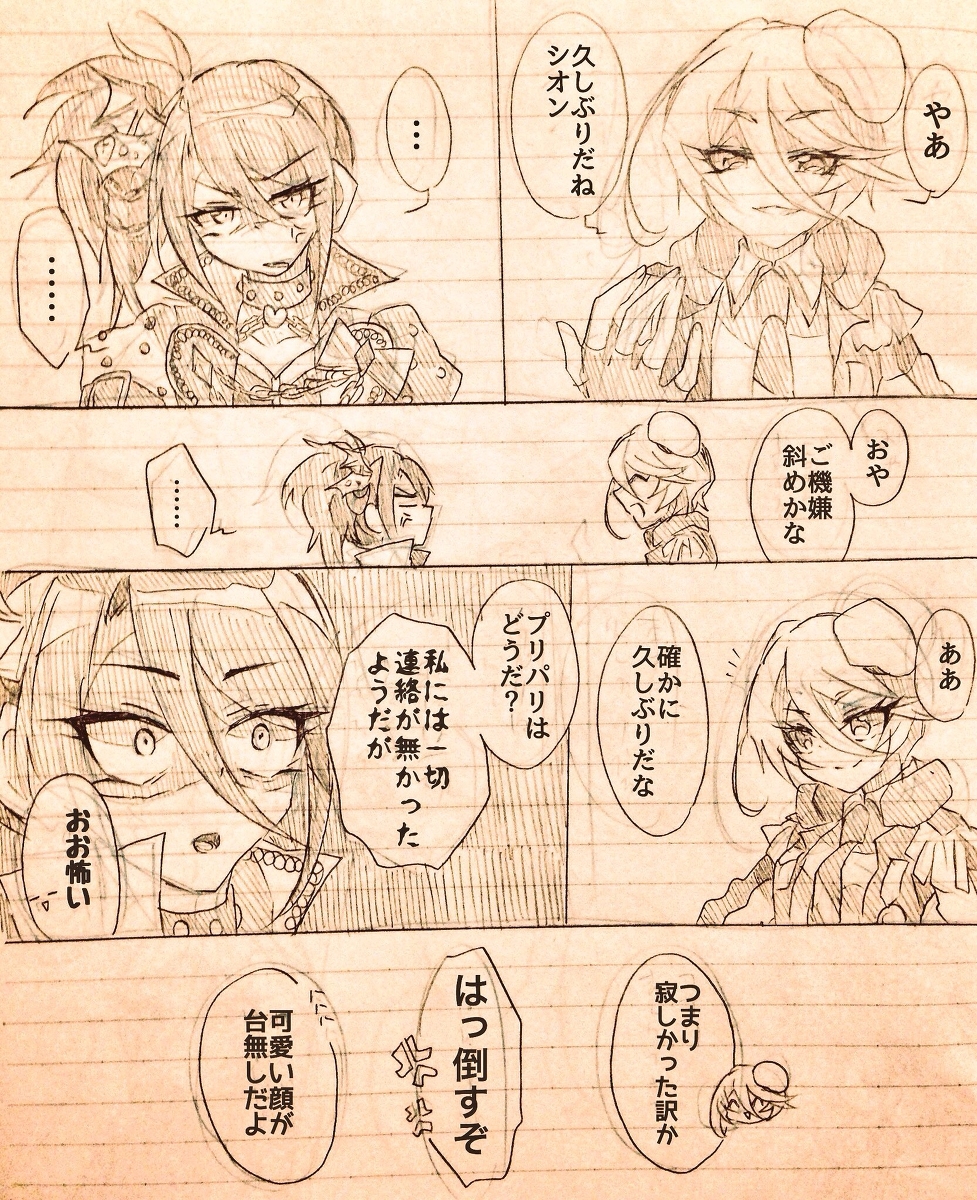 やあ
久しぶりだね
シオン
…
……
おや
ご機嫌
斜めかな
……
ああ
確かに
久しぶりだな
プリパリは
どうだ?
私には一切
連絡が無かった
ようだが
おお怖い
つまり
寂しかった訳か
はっ倒すぞ
可愛い顔が
台無しだよ